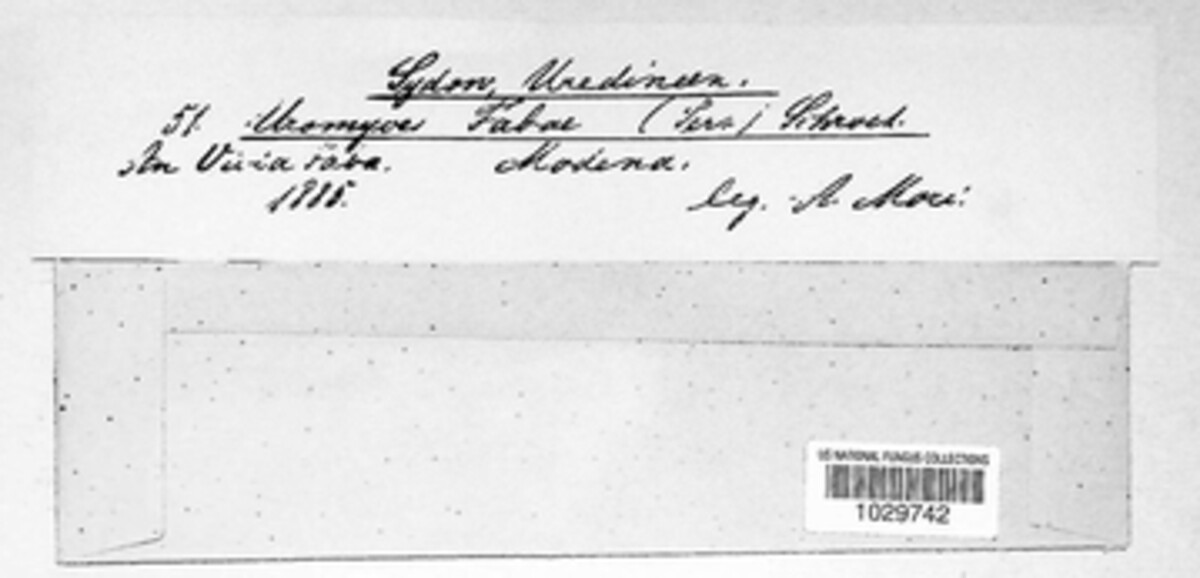 Sydow, Uredineen.
51. Uromyces Fabae (Pers.) Schroet.
An Vicia Faba. Modena.
1885. leg. A. Mori.
US NATIONAL FUNGUS COLLECTIONS
1029742